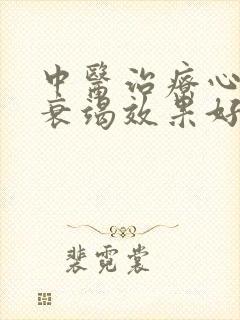 中醫治療心
衰竭效果好
裴霓裳